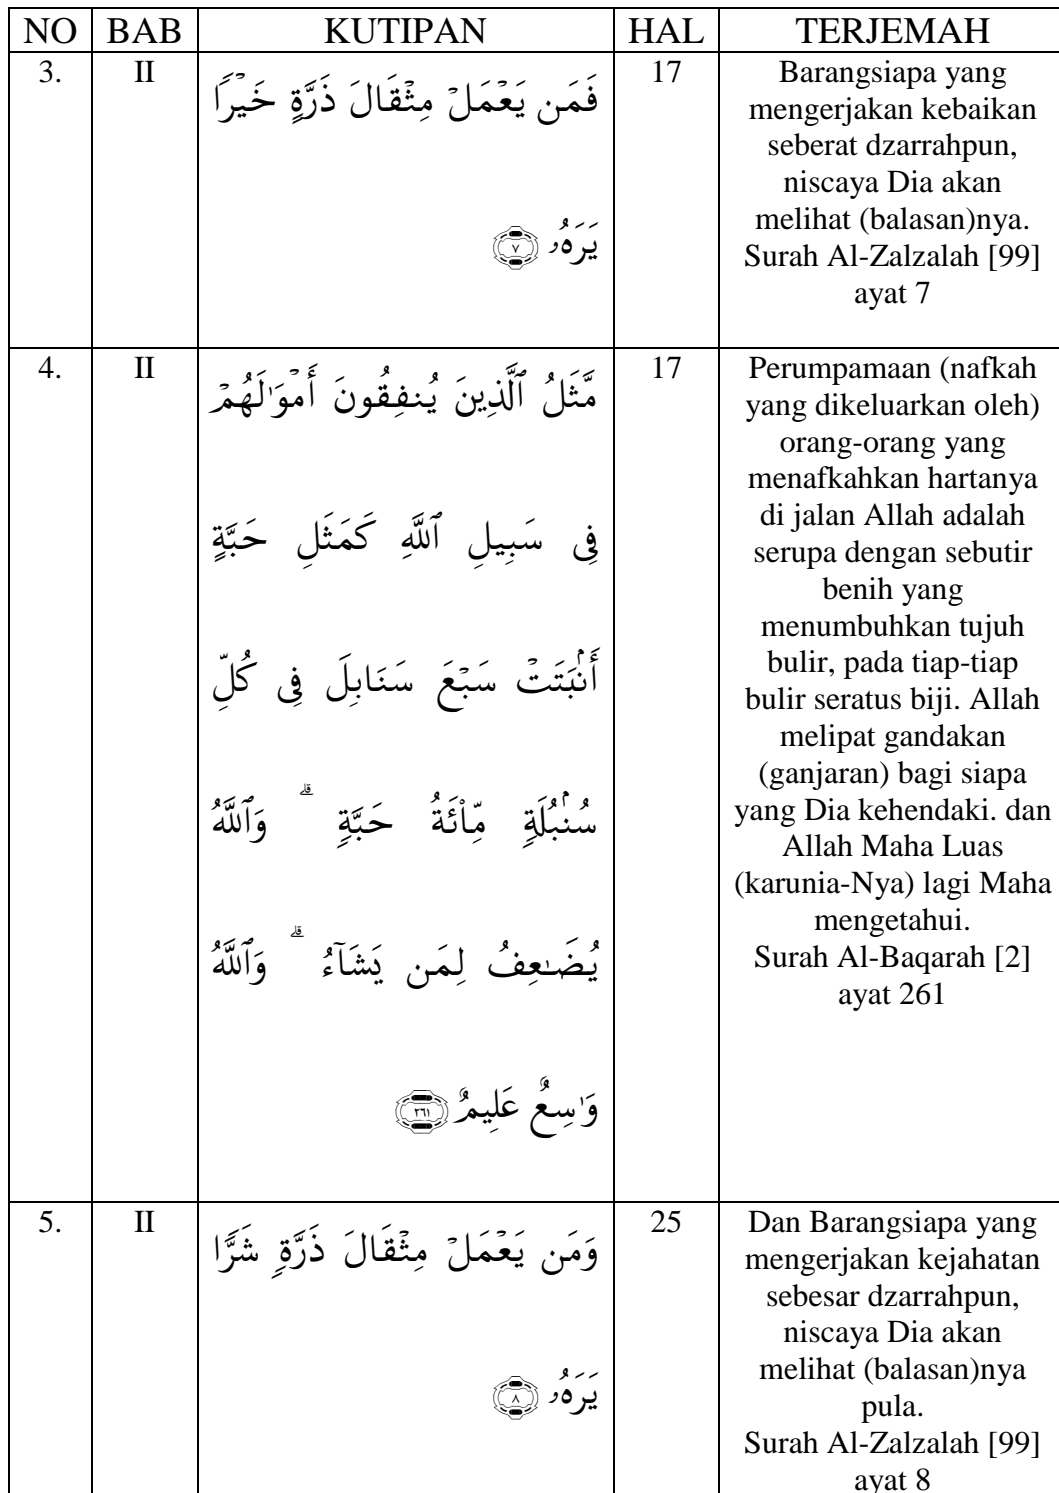 NO BAB KUTIPAN HAL TERJEMAH
3. II
فَمَن يَعْمَلْ مِثْقَالَ ذَرَّةٍ خَيْرًا
يَرَهُۥ ٧
17
Barangsiapa yang
mengerjakan kebaikan
seberat dzarrahpun,
niscaya Dia akan
melihat (balasan)nya.
Surah Al-Zalzalah [99]
ayat 7
4. II
مَّثَلُ ٱلَّذِينَ يُنفِقُونَ أَمْوَٰلَهُمْ
فِى سَبِيلِ ٱللَّهِ كَمَثَلِ حَبَّةٍ
أَنۢبَتَتْ سَبْعَ سَنَابِلَ فِى كُلِّ
سُنۢبُلَةٍ مِّا۟ئَةُ حَبَّةٍ ۗ وَٱللَّهُ
يُضَٰعِفُ لِمَن يَشَآءُ ۗ وَٱللَّهُ
وَٰسِعٌ عَلِيمٌ ٢٦١
17
Perumpamaan (nafkah
yang dikeluarkan oleh)
orang-orang yang
menafkahkan hartanya
di jalan Allah adalah
serupa dengan sebutir
benih yang
menumbuhkan tujuh
bulir, pada tiap-tiap
bulir seratus biji. Allah
melipat gandakan
(ganjaran) bagi siapa
yang Dia kehendaki. dan
Allah Maha Luas
(karunia-Nya) lagi Maha
mengetahui.
Surah Al-Baqarah [2]
ayat 261
5. II
وَمَن يَعْمَلْ مِثْقَالَ ذَرَّةٍ شَرًّا
يَرَهُۥ ٨
25
Dan Barangsiapa yang
mengerjakan kejahatan
sebesar dzarrahpun,
niscaya Dia akan
melihat (balasan)nya
pula.
Surah Al-Zalzalah [99]
ayat 8